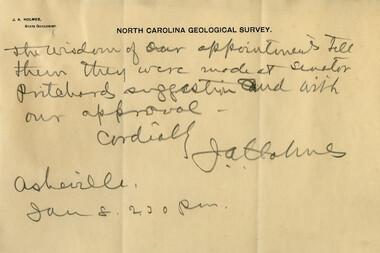 J. A. HOLMES,
STATE GEOLOGIST.
NORTH CAROLINA GEOLOGICAL SURVEY.
the wisdom of our appointments tell
them they were made at Senator
Pritchards suggestion and with
our approval -
Cordially
J.A. Holmes
Asheville.
Jan 8. 2.30 pm.